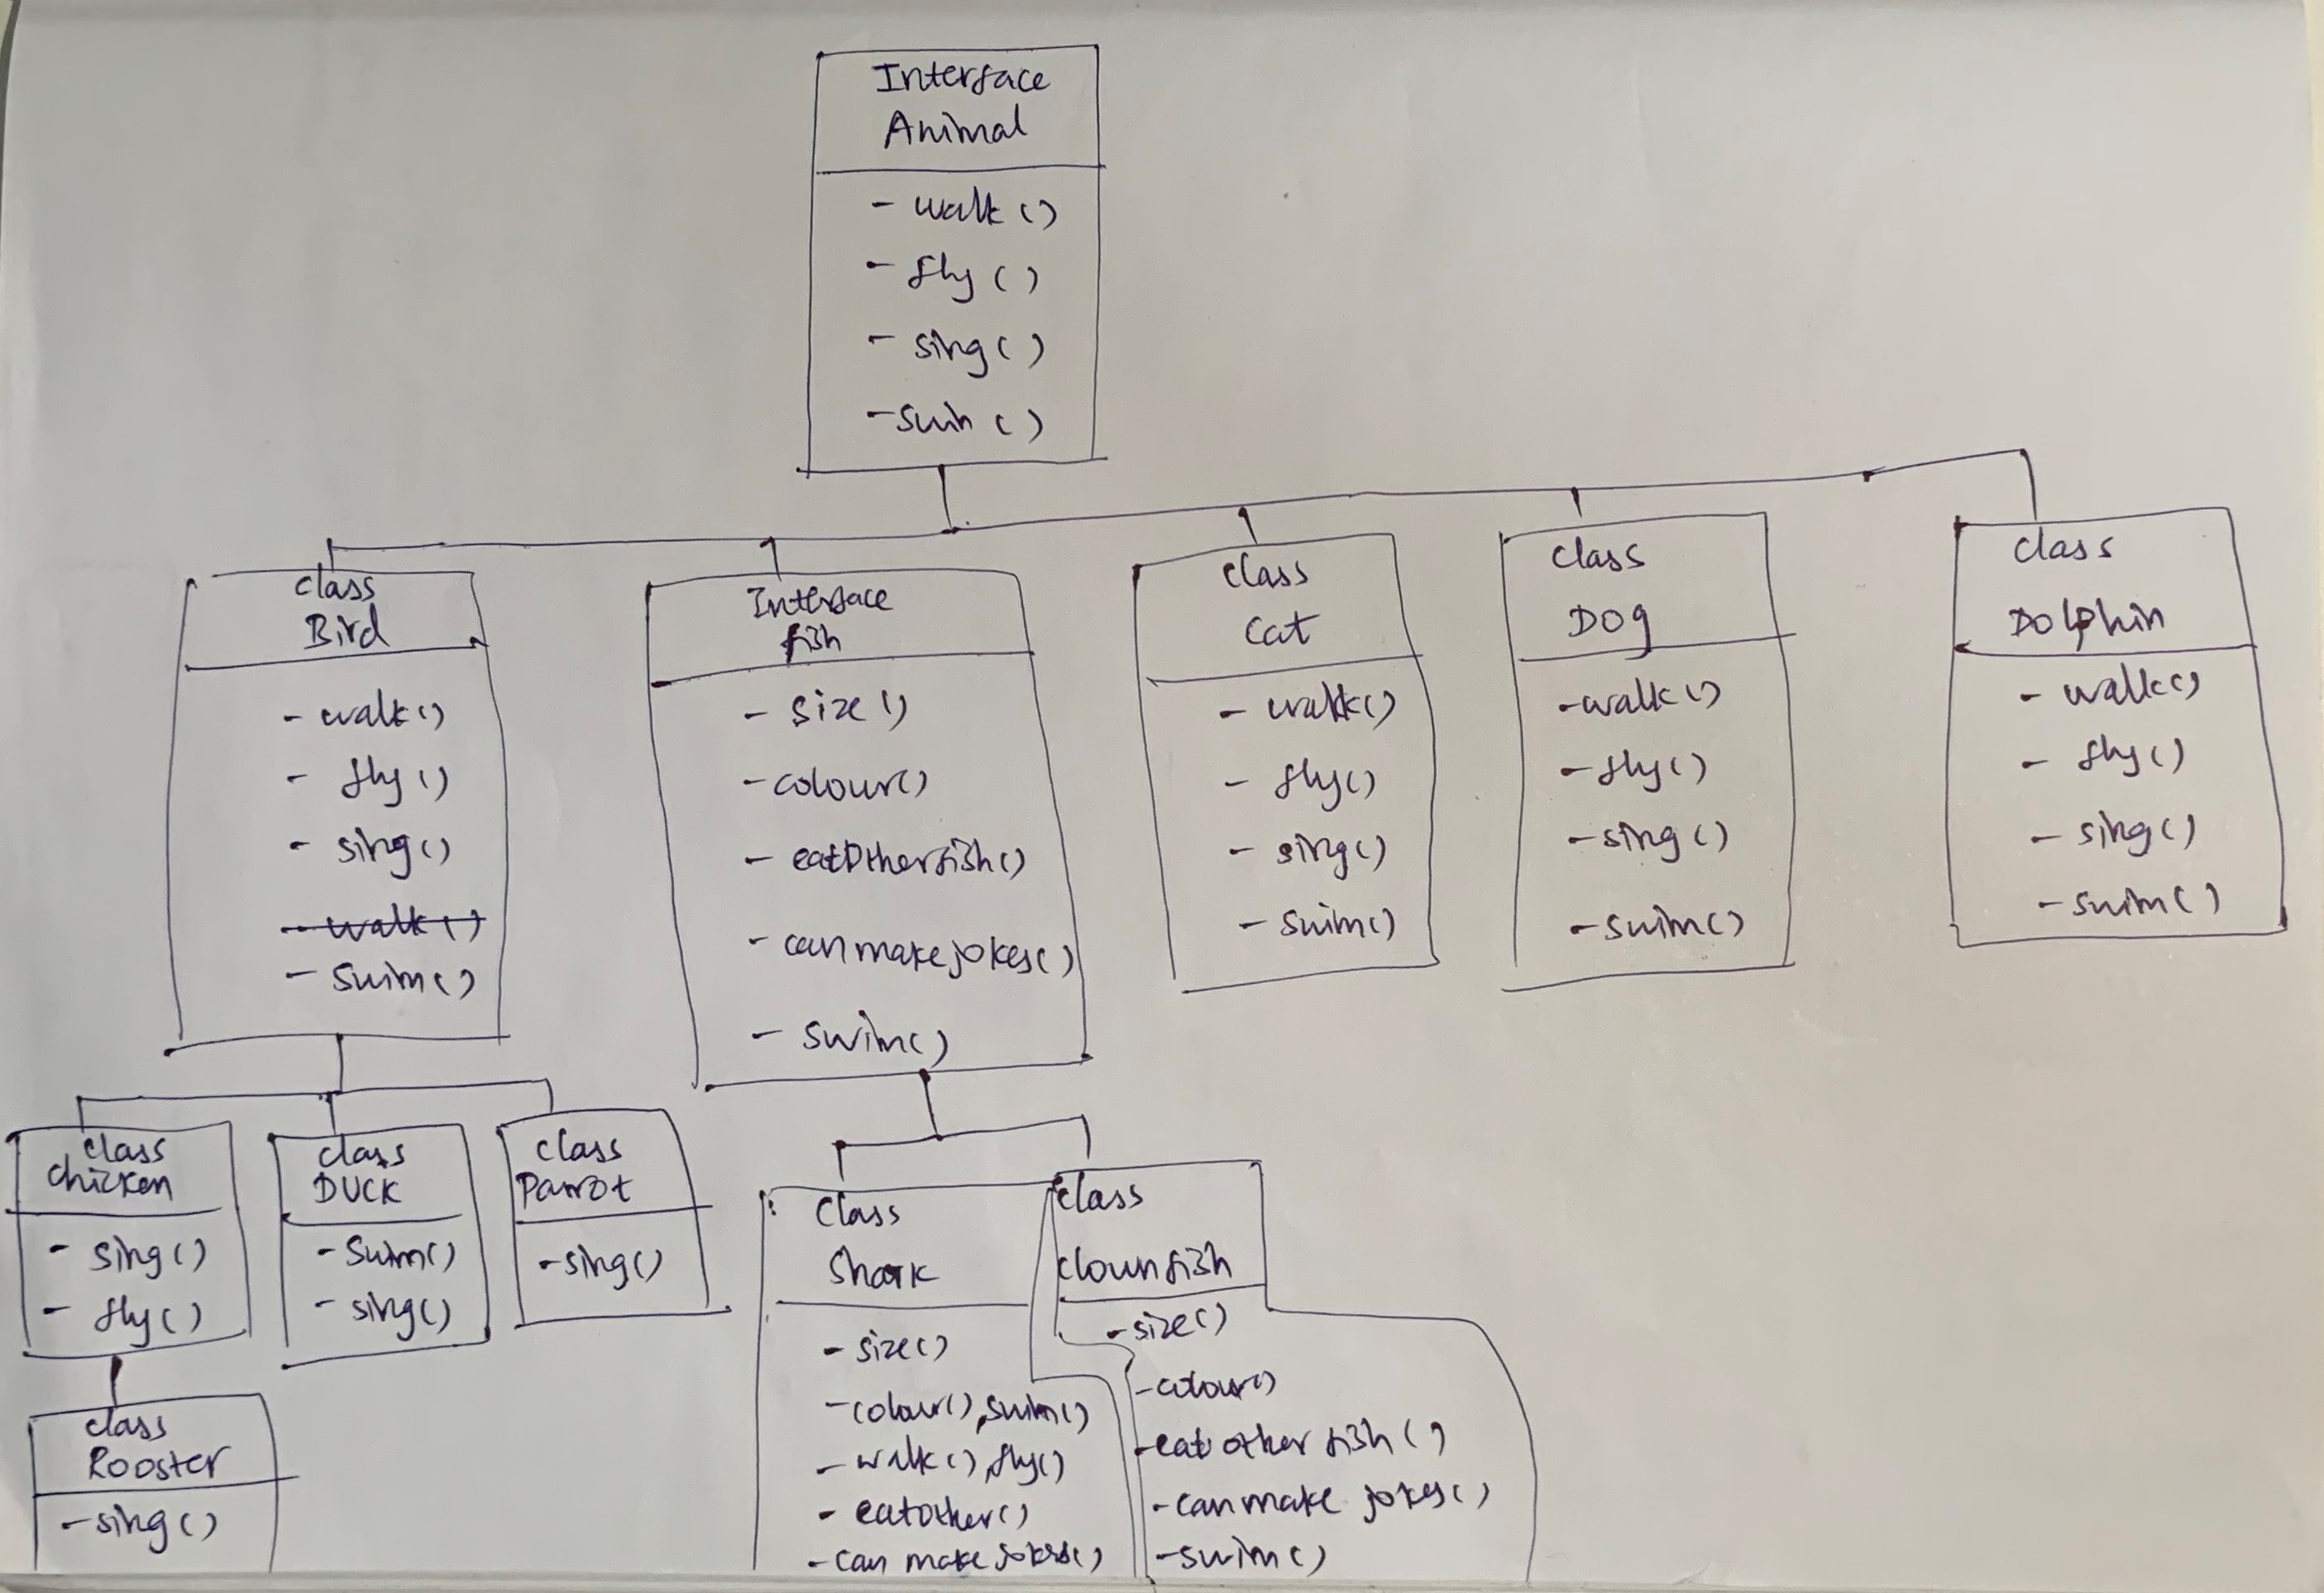 Interface
Animal
- walk ()
- fly ()
- sing ()
- swim ()
class
Bird
- walk ()
- fly ()
- sing ()
- walk ()
- swim ()
Interface
fish
- size ()
- colour()
- eatOtherfish()
- can make jokes()
- swim()
class
cat
- walk()
- fly()
- sing()
- swim()
class
DOg
- walk ()
- fly()
- sing ()
- swim()
class
DOlphin
- walk()
- fly ()
- sing()
- swim()
class
chicken
- sing ()
- fly ()
class
DUCK
- Swim()
- sing()
class
Parrot
- sing ()
class
Rooster
- sing ()
class
Shark
- size()
- colour(), swim()
- walk (), fly()
- eatOther()
- can make jokes()
class
clownfish
- size()
- colour()
- eat other fish ()
- can make jokes()
- swim()